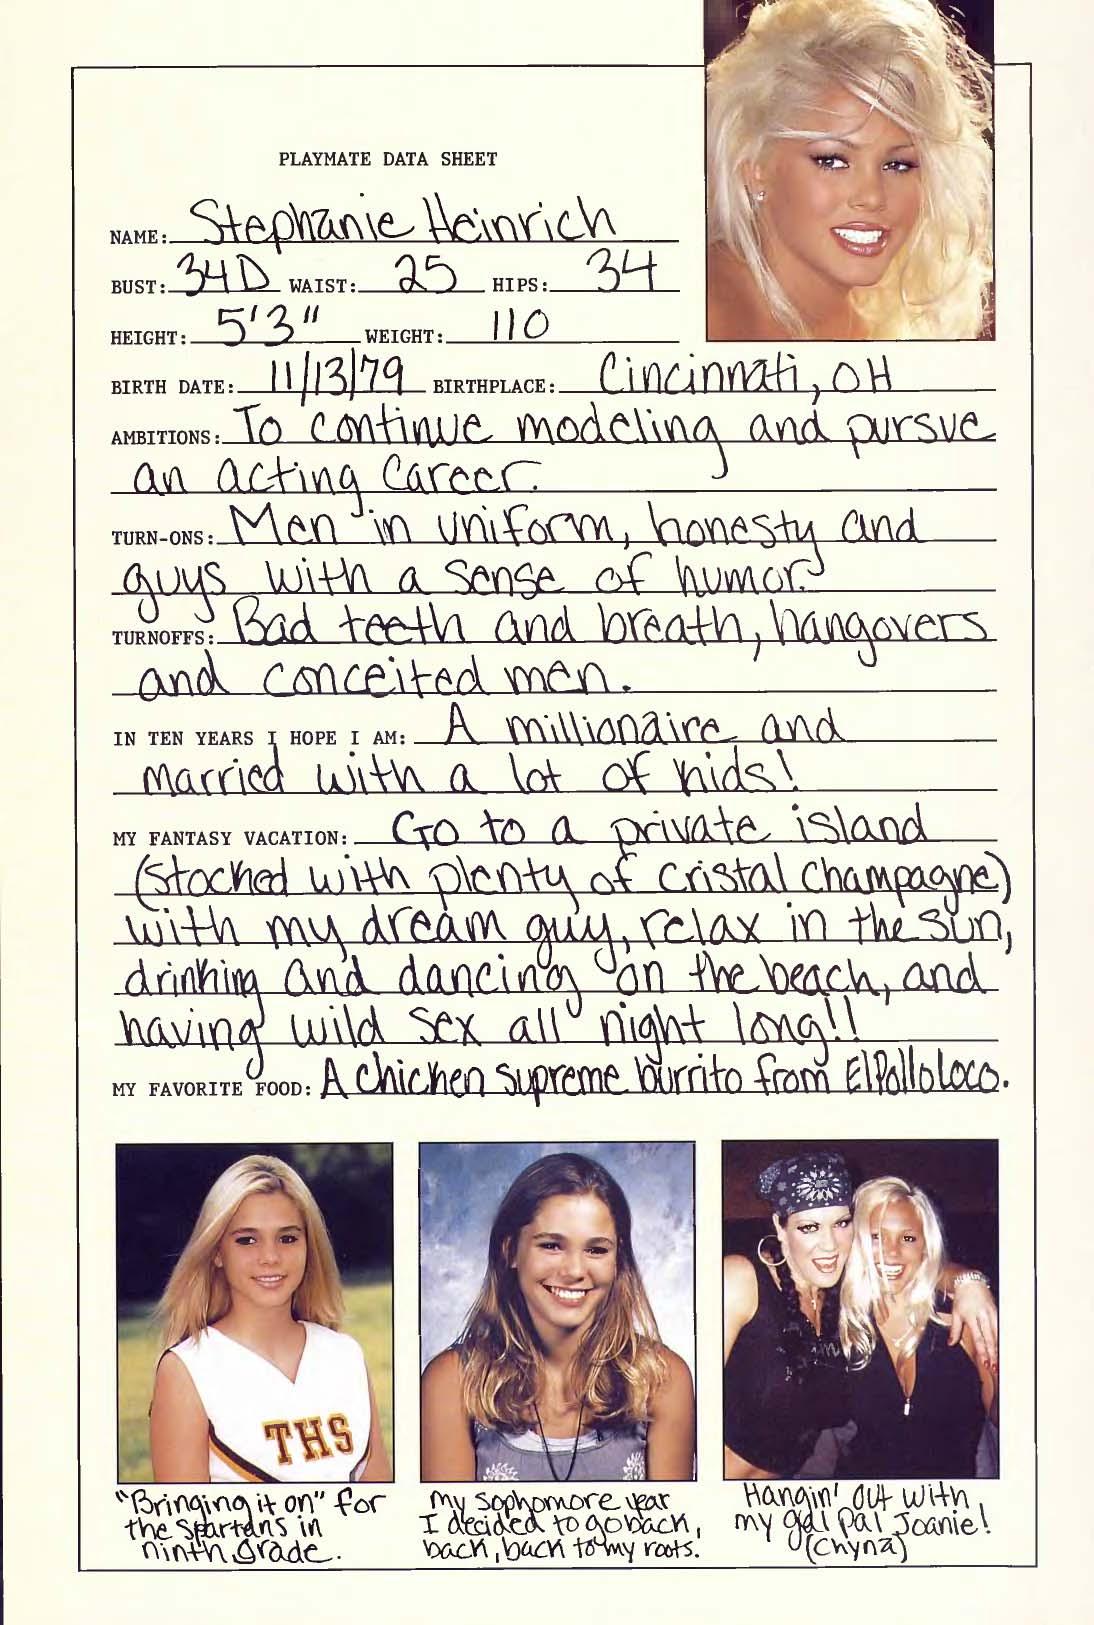 PLAYMATE DATA SHEET
NAME: Stephanie Heinrich
BUST: 34D WAIST: 25 HIPS: 34
HEIGHT: 5'3" WEIGHT: 110
BIRTH DATE: 11/13/79 BIRTHPLACE: Cincinnati, OH
AMBITIONS: To continue modeling and pursue
an acting career.
TURN-ONS: Men in uniform, honesty and
guys with a sense of humor.
TURNOFFS: Bad teeth and breath, hangovers
and conceited men.
IN TEN YEARS I HOPE I AM: A millionaire and
married with a lot of kids!
MY FANTASY VACATION: Go to a private island
(stocked with plenty of Cristal champagne)
with my dream guy, relax in the sun,
drinking and dancing on the beach, and
having wild sex all night long!!
MY FAVORITE FOOD: A chicken supreme burrito from El Pollo Loco.
THS
"Bringing it on" for
the Spartans in
ninth grade.
My sophomore year
I decided to go back,
back, back to my roots.
Hangin' out with
my gal pal Joanie!
(Chyna)